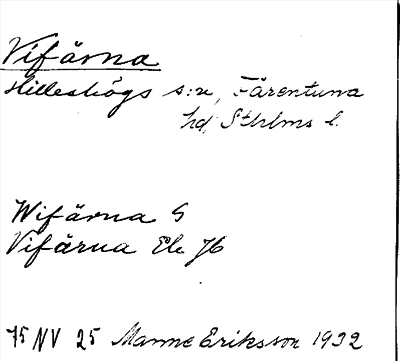 Vifärna
Hilleshögs s:n, Färentuna
hd, Sthlms l.
Wifärna G
Vifärna Ek 76
75 NV 25 Manne Eriksson 1932